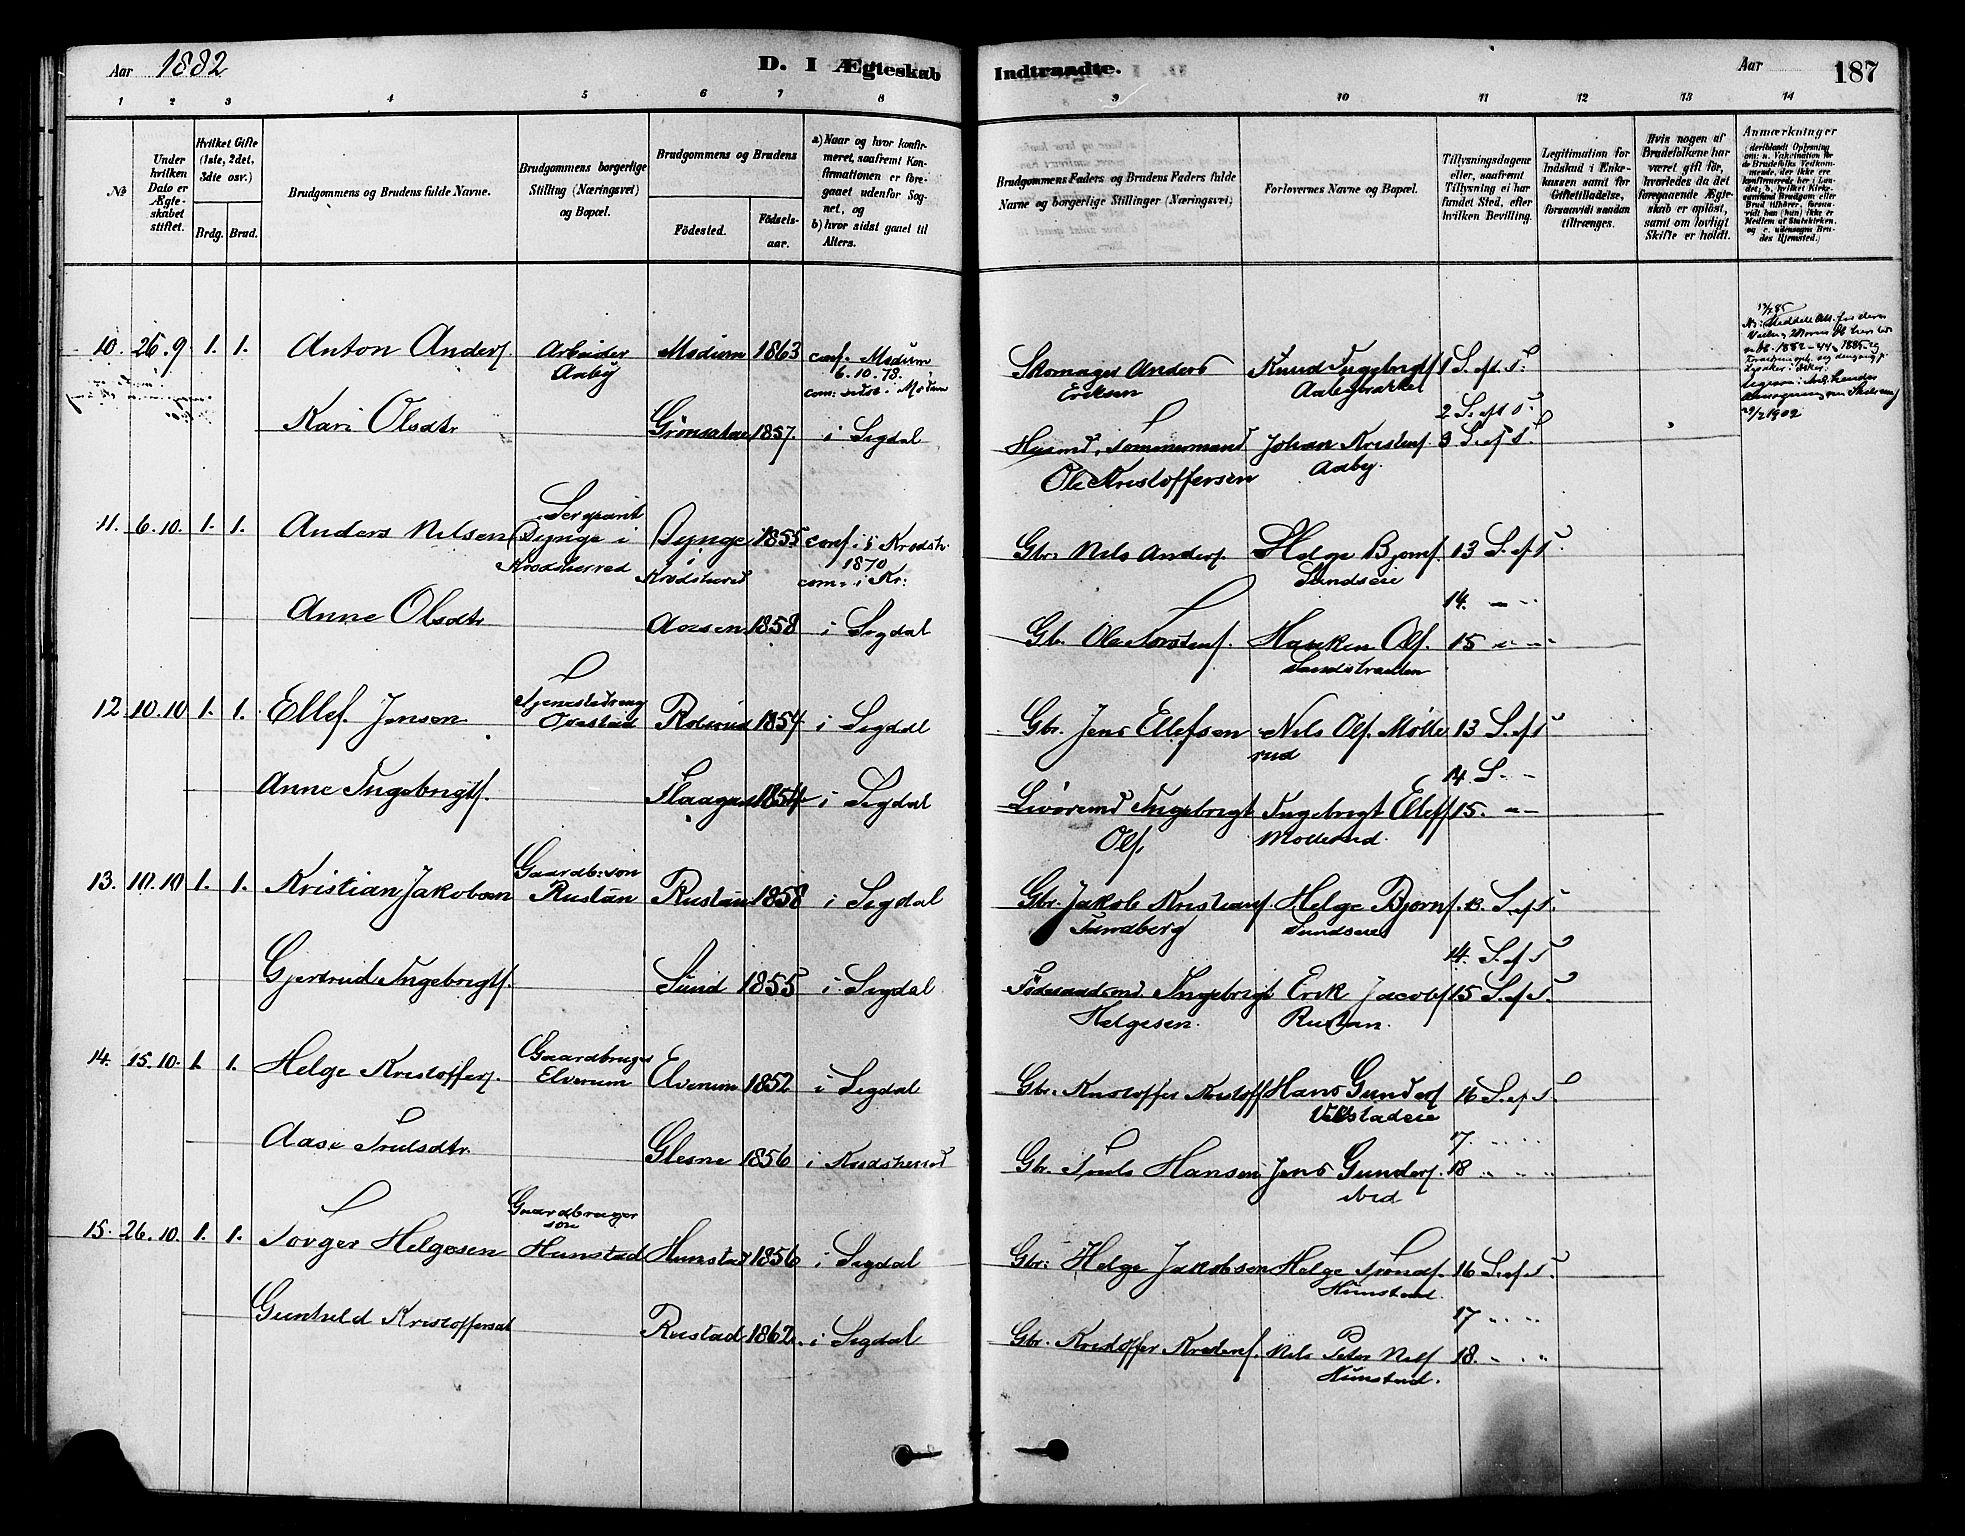 Aar 1882
D. I Ægteskab Indtraadte.
Aar 187
1 2 3 4 5 6 7 8 9 10 11 12 13 14
No
Under hvilken Dato er Ægteskabet stiftet.
Hvilket Gifte (1ste, 2det, 3die osv.)
Brdg. Brud.
Brudgommens og Brudens fulde Navne.
Brudgommens borgerlige Stilling (Næringsvei) og Bopæl.
Brudgommens og Brudens
Födested. Födsels-aar.
a) Naar og hvor konfirmeret, saafremt Konfirmationen er foregaaet udenfor Sognet, og
b) hvor sidst gaaet til Alters.
Brudgommens Faders og Brudens Faders fulde Navne og borgerlige Stillinger (Næringsvei)
Forlovernes Navne og Bopæl.
Tillysningsdagene eller, saafremt Tillysning ei har fundet Sted, efter hvilken Bevilling.
Legitimation for Indskud i Enkekassen samt for Giftetilladelse, forsaavidt saadan tiltrænges.
Hvis nogen af Brudefolkene har været gift för, hvorledes da det foregaaende Ægteskab er oplöst, samt om lovligt Skifte er holdt.
Anmærkninger
10. 26.9 1. 1. Anton Anders. Arbeider Aaby Modum 1863 conf. Modum 6.10.78. com: sidst i Modum
Skomager Anders Eriksen Knud Ingebrigts Aabybrakka 1 S. ef. T.
2 S. eft T.
Kari Olsdtr 1857. i Sigdal
Husmd, Tommermand Ole Kristoffersen Johan Kristens. Aaby. 3 S. ef T.
11. 6.10. 1. 1. Anders Nilsen Sergeant Bynge i Krodsherred Bynge Krodsherred 1855 conf. i Krodsh. 1870 com. i Kr:
Gbr. Nils Anders. Helge Bjorns. Sundseie 13 S. ef. T.
14. " "
Anne Olsdtr Aasen 1858 i Sigdal
Gb. Ole Torstens. Haaken Ols. Sandstranden 15 " "
12 10.10 1. 1. Ellef Jensen Tjenestedreng 1854 i Sigdal
Gbr. Jens Ellefsen Nils Ols. Mølle rud 13 S. ef T
14. S. "
Anne Ingebrigts. Flaagan 1854 i Sigdal
Ingebrigt Ols. Ingebrigt Ellefs Mollerud. 15. " "
13. 10.10 1. 1. Kristian Jakobsen Gaardb: søn Rustan Rustan 1858 i Sigdal
Gbr. Jakob Kristians. Helge Bjorns. Sundseie 13. S. ef T.
14. S. ef T
Gjertrud Ingebrigts. Sund 1855 i Sigdal.
Føderaadsmd. Ingebrigt Helgesen. Erik Jacobs Rustan. 15 S. ef T.
14. 15.10. 1. 1. Helge Kristoffers. Gaardbruger Elverum Elverum 1852 i Sigdal
Gbr. Kristoffer Kristoffs Hans Gunders 16 S. ef T.
17. " "
Aase Trulsdtr. Glesne 1856 i Krodsherred
Gbr. Truls Hansen Jens Gunders. ibid 18 " "
15. 26.10. 1. 1. Torger Helgesen Gaardbruger søn Hunstad Hunstad 1856 i Sigdal
Gbr: Helge Jakobsen Helge Tronds. Hunstad. 16 S. ef T.
17 " "
Gunhild Kristoffersdt Rustad 1862. i Sigdal
Gbr. Kristoffer Kristens. Nils Peter Nils Hunstad. 18. " "